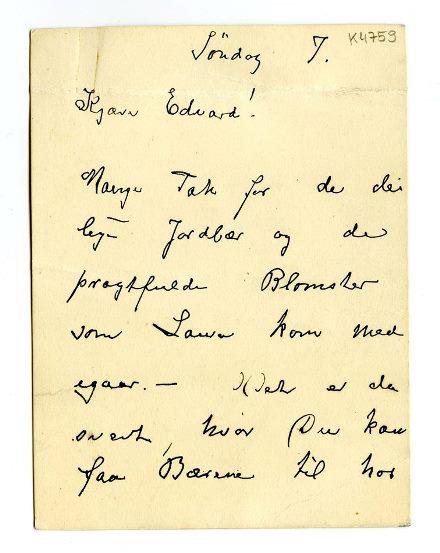 Søndag 7.
K4759
Kjære Edvard!
Mange Tak for de dei
lige Jordbær og de
pragtfulde Blomster
som Laura kom med
igaar. — Det er da
svært, hvor Du kan
faa Bærene til hos